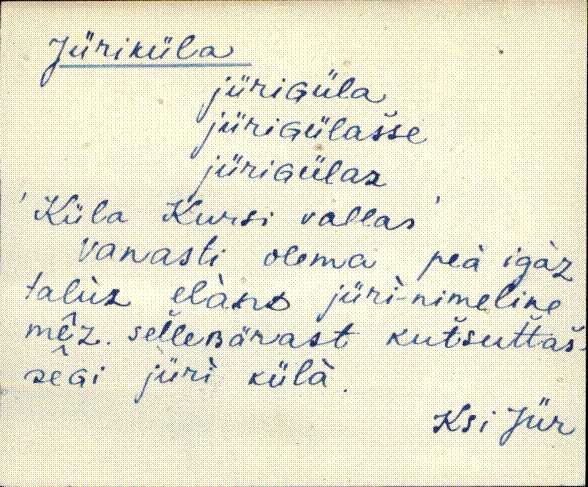 Jüriküla
jüriɢüla
jüriɢülašse
jüriɢülaz
'Küla Kursi vallas'
vanasti olema peà igàz
talùz elànᴅ jürì-nimeline
mêz. selleʙärast kutsuttas-
sêɢi jürì külà.
Ksi Jür